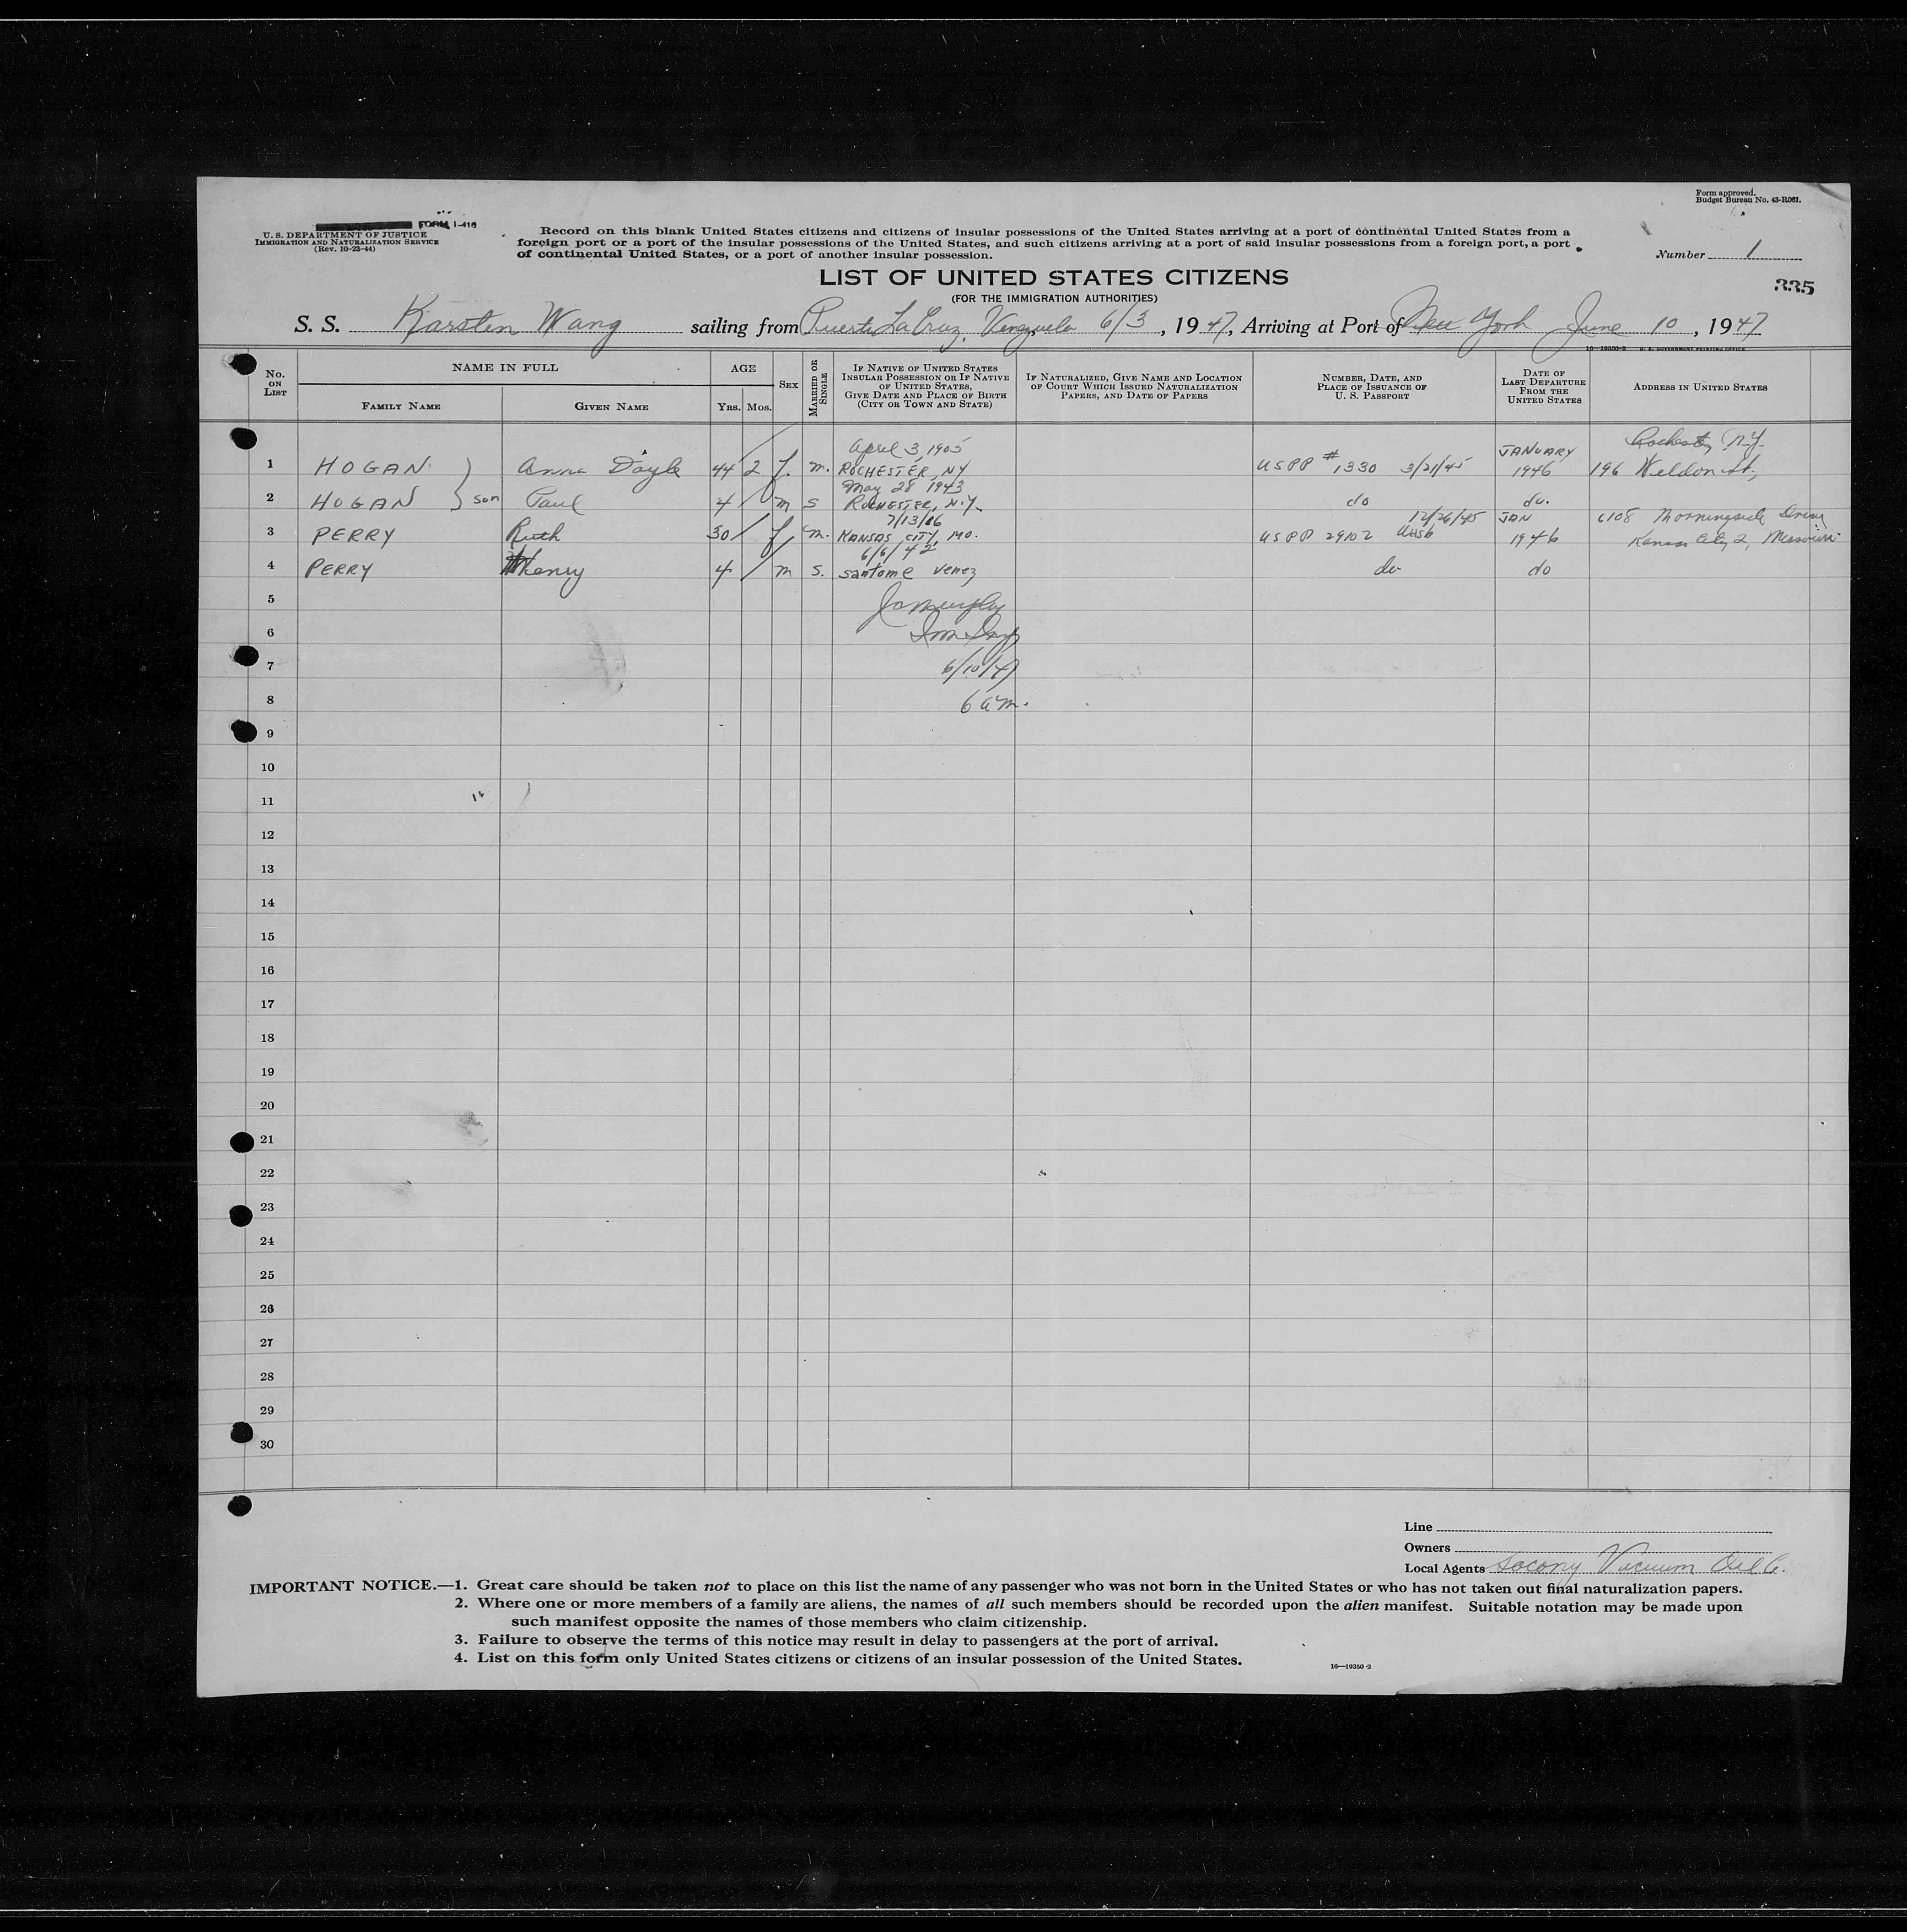 Form approved.
Budget Bureau No. 43-R061.
FORM I-416
U. S. DEPARTMENT OF JUSTICE
IMMIGRATION AND NATURALIZATION SERVICE
(Rev. 10-23-44)
Record on this blank United States citizens and citizens of insular possessions of the United States arriving at a port of continental United States from a
foreign port or a port of the insular possessions of the United States, and such citizens arriving at a port of said insular possessions from a foreign port, a port
of continental United States, or a port of another insular possession.
Number 1
LIST OF UNITED STATES CITIZENS
335
(FOR THE IMMIGRATION AUTHORITIES)
S. S. Karsten Wang sailing from Puerto La Cruz, Venezuela 6/3, 1947, Arriving at Port of New York June 10, 1947
16—19350-2 U. S. GOVERNMENT PRINTING OFFICE
No. ON LIST
NAME IN FULL
FAMILY NAME
GIVEN NAME
AGE
Yrs. Mos.
SEX
MARRIED OR SINGLE
IF NATIVE OF UNITED STATES INSULAR POSSESSION OR IF NATIVE OF UNITED STATES, GIVE DATE AND PLACE OF BIRTH (CITY OR TOWN AND STATE)
IF NATURALIZED, GIVE NAME AND LOCATION OF COURT WHICH ISSUED NATURALIZATION PAPERS, AND DATE OF PAPERS
NUMBER, DATE, AND PLACE OF ISSUANCE OF U. S. PASSPORT
DATE OF LAST DEPARTURE FROM THE UNITED STATES
ADDRESS IN UNITED STATES
1 HOGAN Anna Doyle 44 2 f. m. April 3, 1905 ROCHESTER, NY USPP # 1330 3/21/45 JANUARY 1946 Rochester, N.Y. 196 Weldon St.,
2 HOGAN son Paul 4 m s May 28 1943 ROCHESTER, N.Y. do do.
3 PERRY Ruth 30 f m. 7/13/16 KANSAS CITY, MO. USPP 29102 12/26/45 Wash JAN 1946 6108 Morningside Drive Kansas City 2, Missouri
4 PERRY Henry 4 m s. 6/6/42 santome venez do do
5
6
7 6/10/47
8 6 am.
9
10
11
12
13
14
15
16
17
18
19
20
21
22
23
24
25
26
27
28
29
30
Line
Owners
Local Agents Socony Vacuum Oil Co.
IMPORTANT NOTICE.—1. Great care should be taken not to place on this list the name of any passenger who was not born in the United States or who has not taken out final naturalization papers.
2. Where one or more members of a family are aliens, the names of all such members should be recorded upon the alien manifest. Suitable notation may be made upon
such manifest opposite the names of those members who claim citizenship.
3. Failure to observe the terms of this notice may result in delay to passengers at the port of arrival.
4. List on this form only United States citizens or citizens of an insular possession of the United States.
16—19350-2